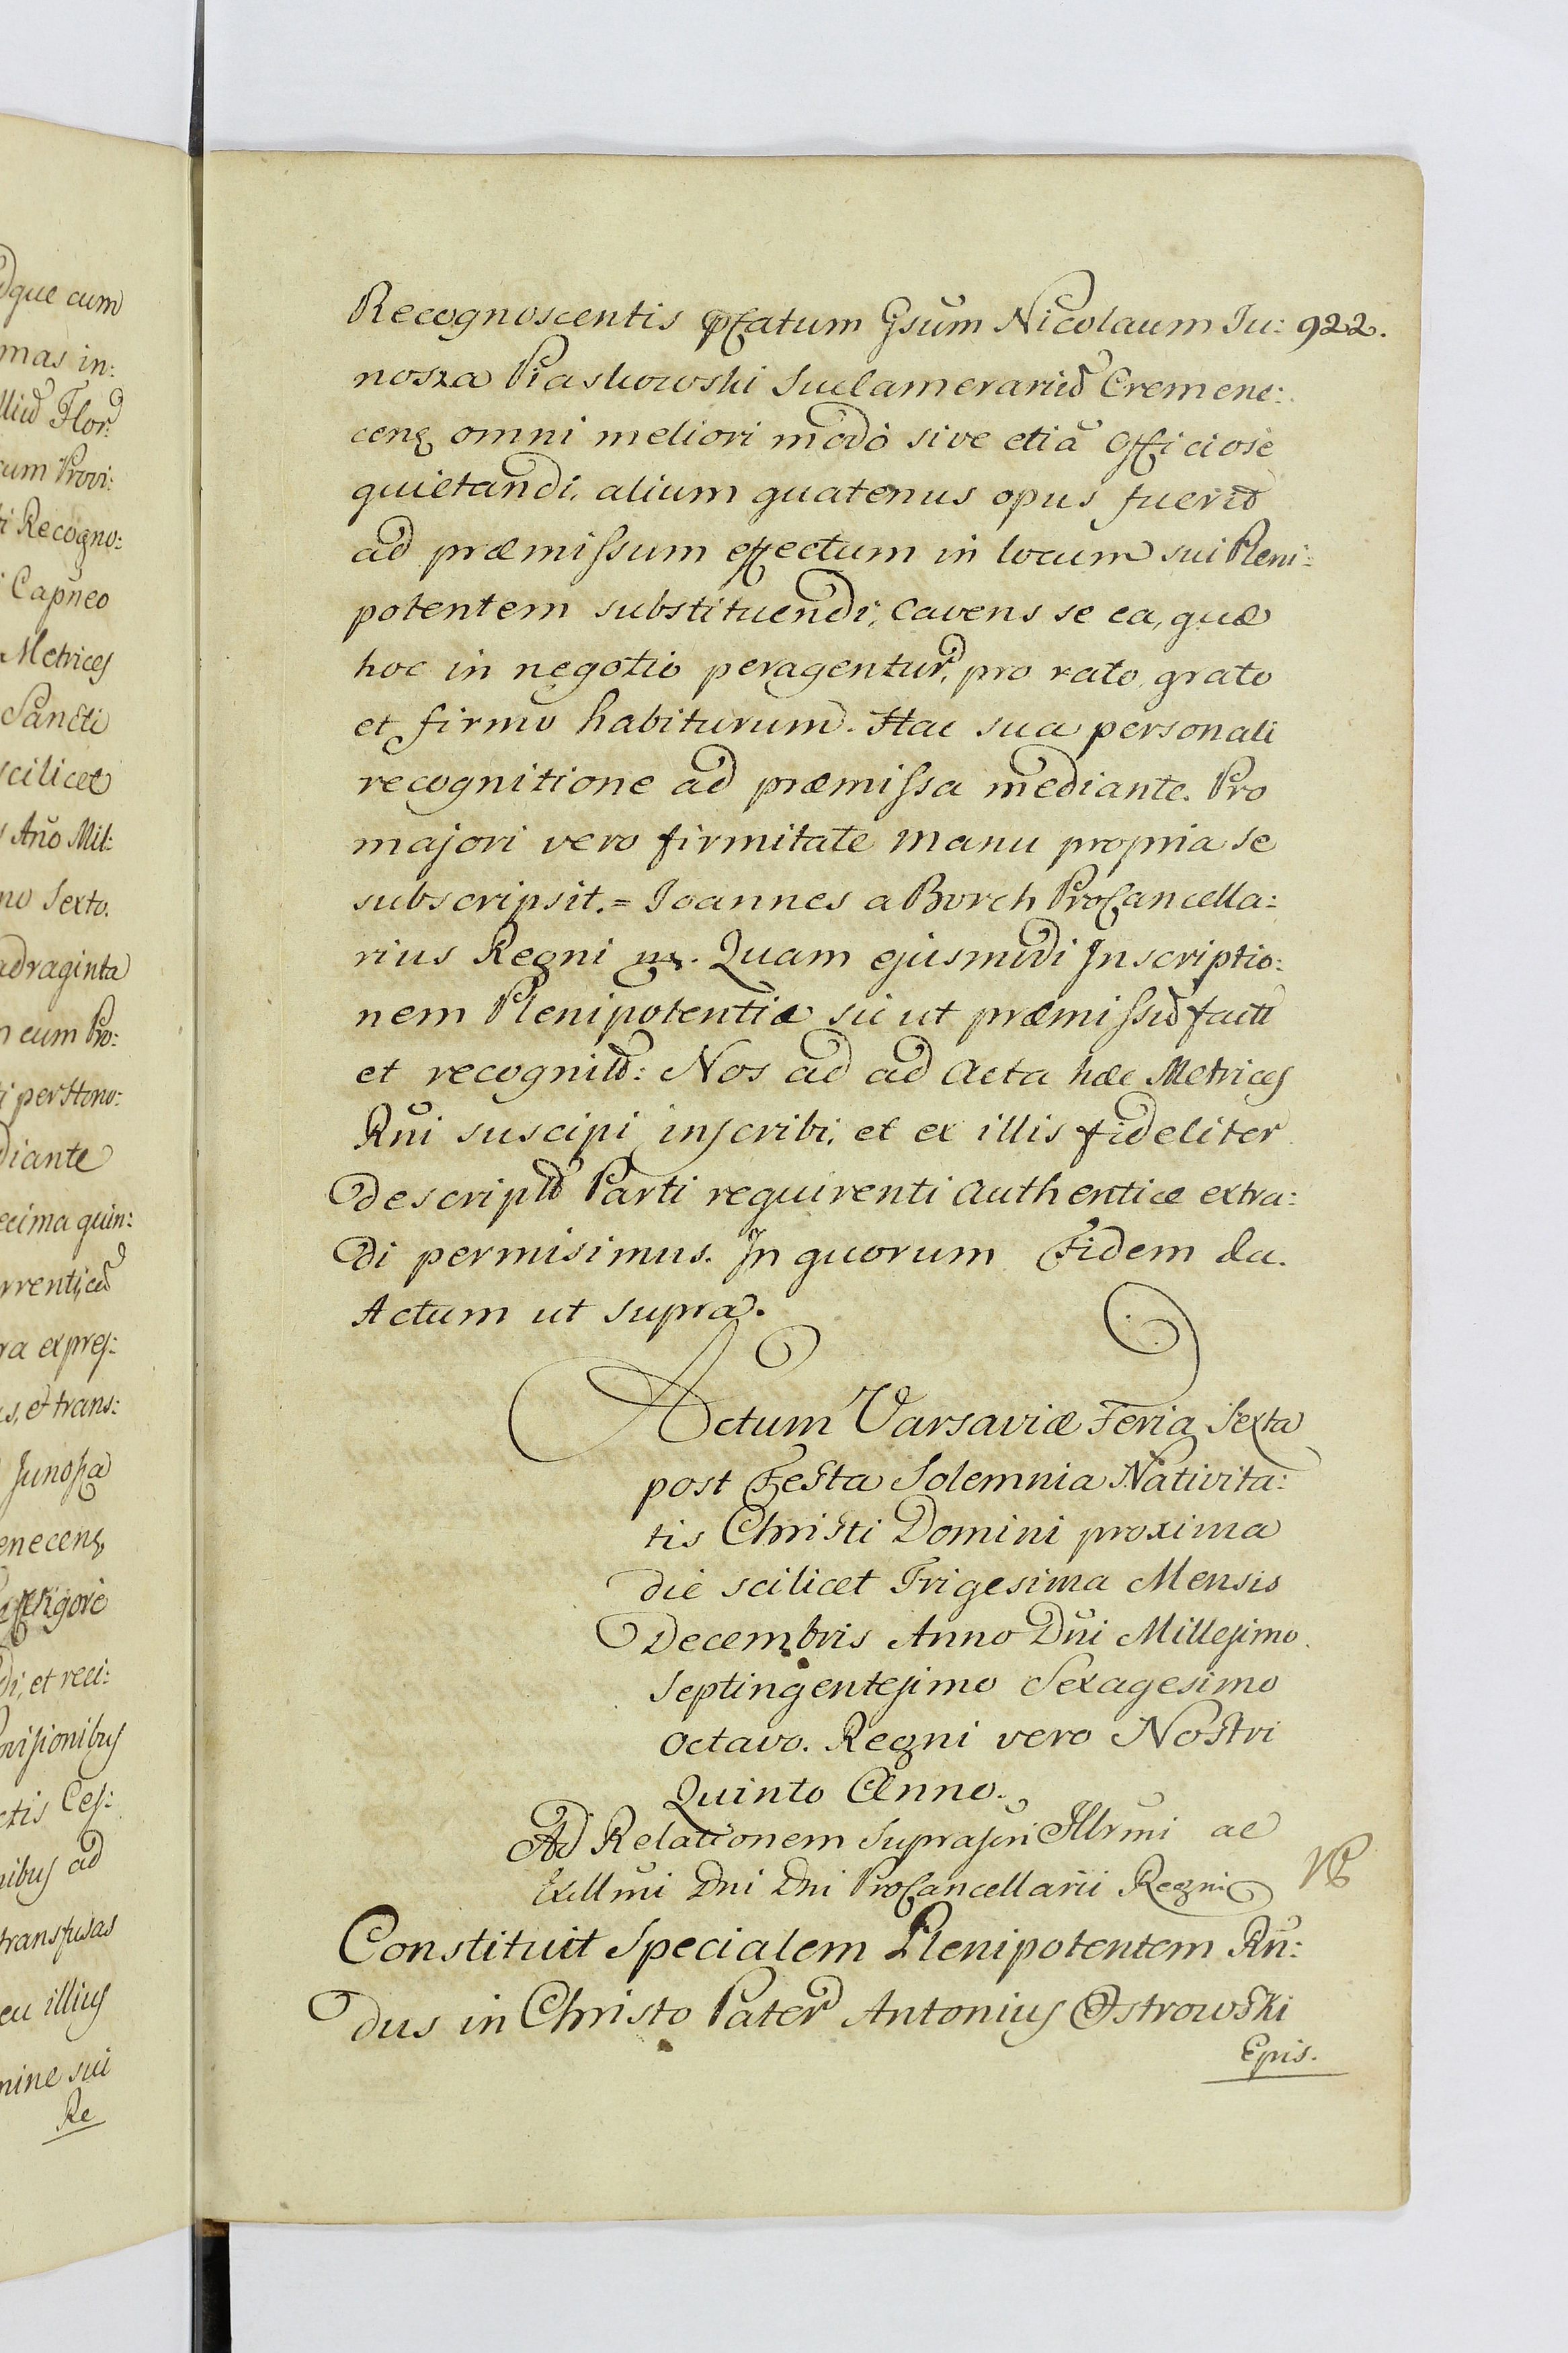 dque cum
mas in:
Flor:
cum Provi:
i Recogno:
Capneo
Metrices
Sancti
scilicet
Año Mil:
no Sexto.
adraginta
cum Pro:
i per Hono:
diante
ecima quin:
ra expres:
s, et trans:
Junosza
enecens
di, et reci:
ovisionibus
ctis Ces:
nibus ad
transfusas
eu illius
mine sui
Re
922.
Recognoscentis pfatum Gsum Nicolaum Ju:
nosza Piaskowski Succamerarium Cremene:
cens omni meliori modo sive etiã officiose
quietandi, alium quatenus opus fuerit
ad præmissum effectum in locum sui Pleni:
potentem substituendi, Cavens se ea, quæ
hoc in negotio peragentur, pro rato, grato
et firmo habiturum. Hac sua personali
recognitione ad præmissa mediante. Pro
majori vero firmitate manu propria se
subscripsit. = Joannes a Borch ProCancella:
rius Regni mp. Quam ejusmodi Inscriptio:
nem Plenipotentiæ sic ut præmissum
et recognit: Nos ad ad Acta hæc Metrices
Rñi suscipi inscribi, et ex illis fideliter
descript Parti requirenti authentice extra:
di permisimus. In quorum Fidem &a.
Actum ut supra.
Actum Varsaviæ Feria Sexta
post Festa Solemnia Nativita:
tis Christi Domini proxima
die scilicet Trigesima Mensis
Decembris Anno Dñi Millesimo
Septingentesimo Sexagesimo
Octavo. Regni vero Nostri
Quinto Anno.
Ad Relationem Suprascri Illrmi ac
Excllmi Dni Dni ProCancellarii Regni
Constituit Specialem Plenipotentem Rñ:
dus in Christo Pater Antonius Ostrowski
Epis.